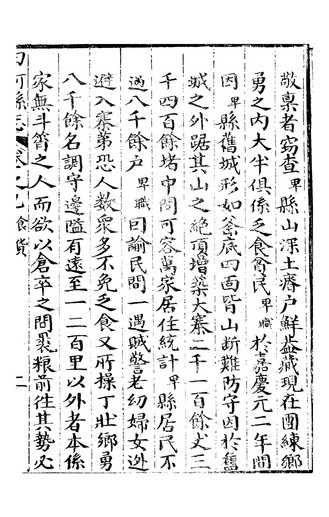 敬稟者竊查卑縣山深土瘠戶鮮蓋藏現在團練鄉
勇之內大半俱係乏食貧民卑職於嘉慶元二年間
因卑縣舊城形如釜底四面皆山斷難防守因於舊
城之外踞其山之絶頂增築大寨二千一百餘丈三
千四百餘堵中間可容萬家居住統計卑縣居民不
過八千餘戶卑職曰諭民間一遇賊警老幼婦女迯
避入寨第恐人數衆多不免乏食又所操丁壯鄉勇
八千餘名調守邊隘有遠至一二百里以外者本係
家無斗筲之人而欲以倉卒之間裹粮前往其勢必
白河縣志 卷之九 食貨 二